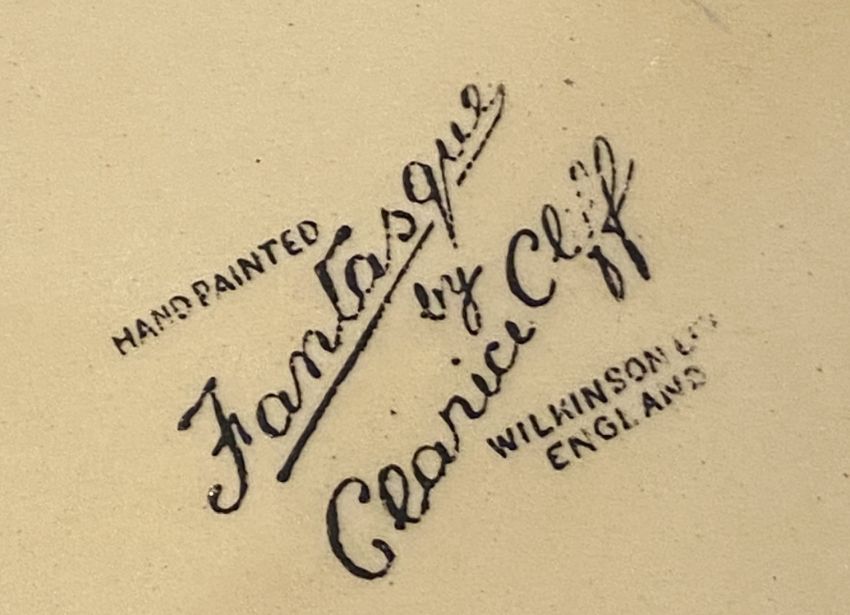 HAND PAINTED
Fantasque
by
Clarice Cliff
WILKINSON LTD
ENGLAND